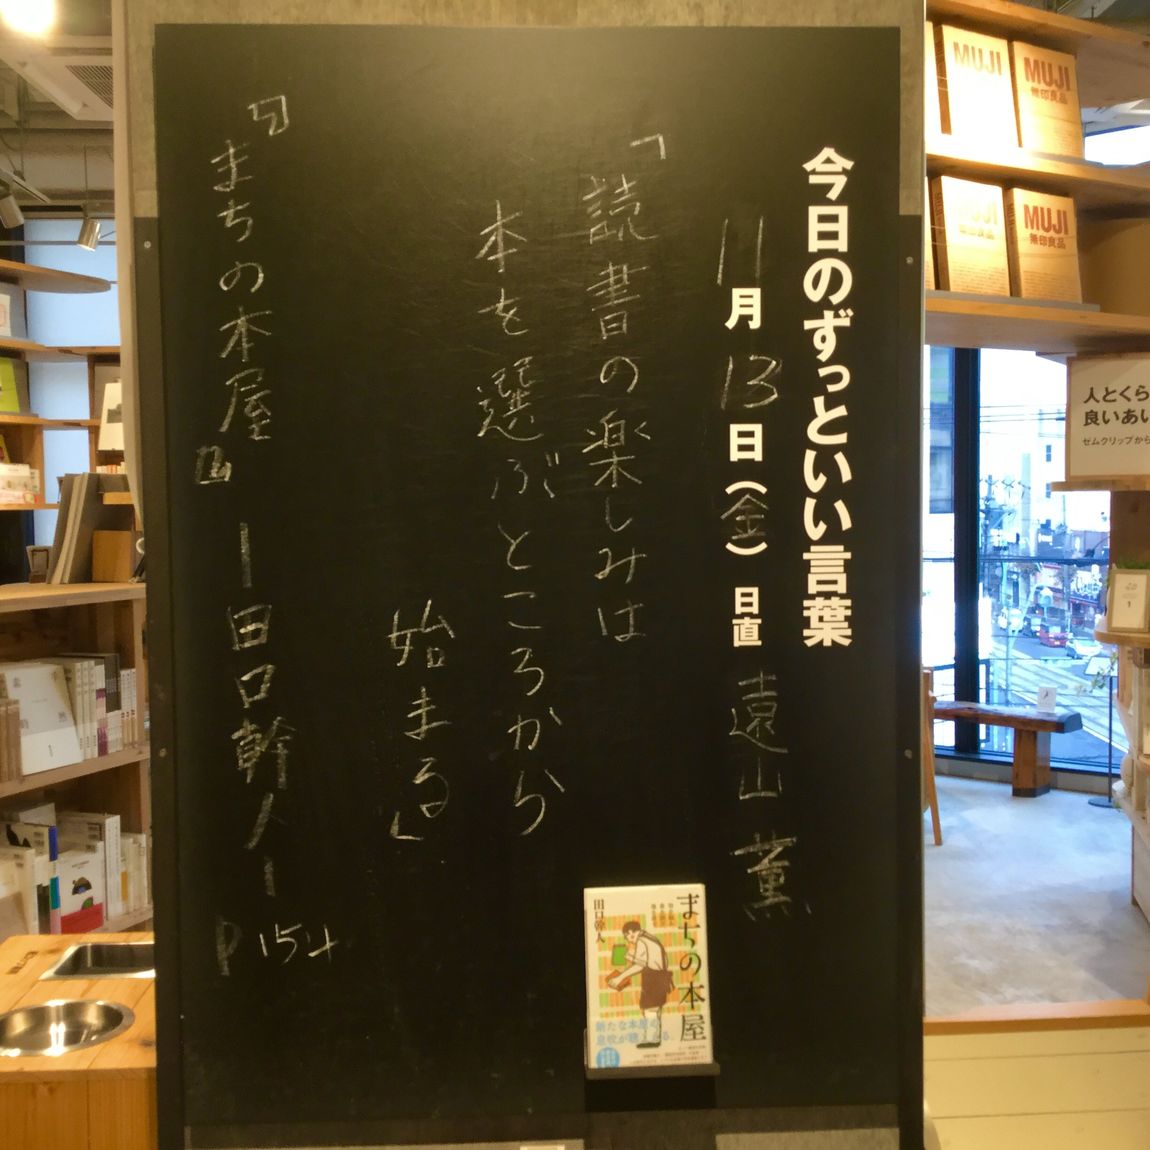 今日のずっといい言葉
11月13日(金) 日直 遠山 薫
「読書の楽しみは
本を選ぶところから
始まる」
『まちの本屋』 ー田口幹人ー
P154
まちの本屋
田口幹人
新たな本屋の
息吹が聴こえる。
MUJI
MUJI
無印良品
MUJI
MUJI
無印良品
人とくら
良いあい
ゼムクリップから